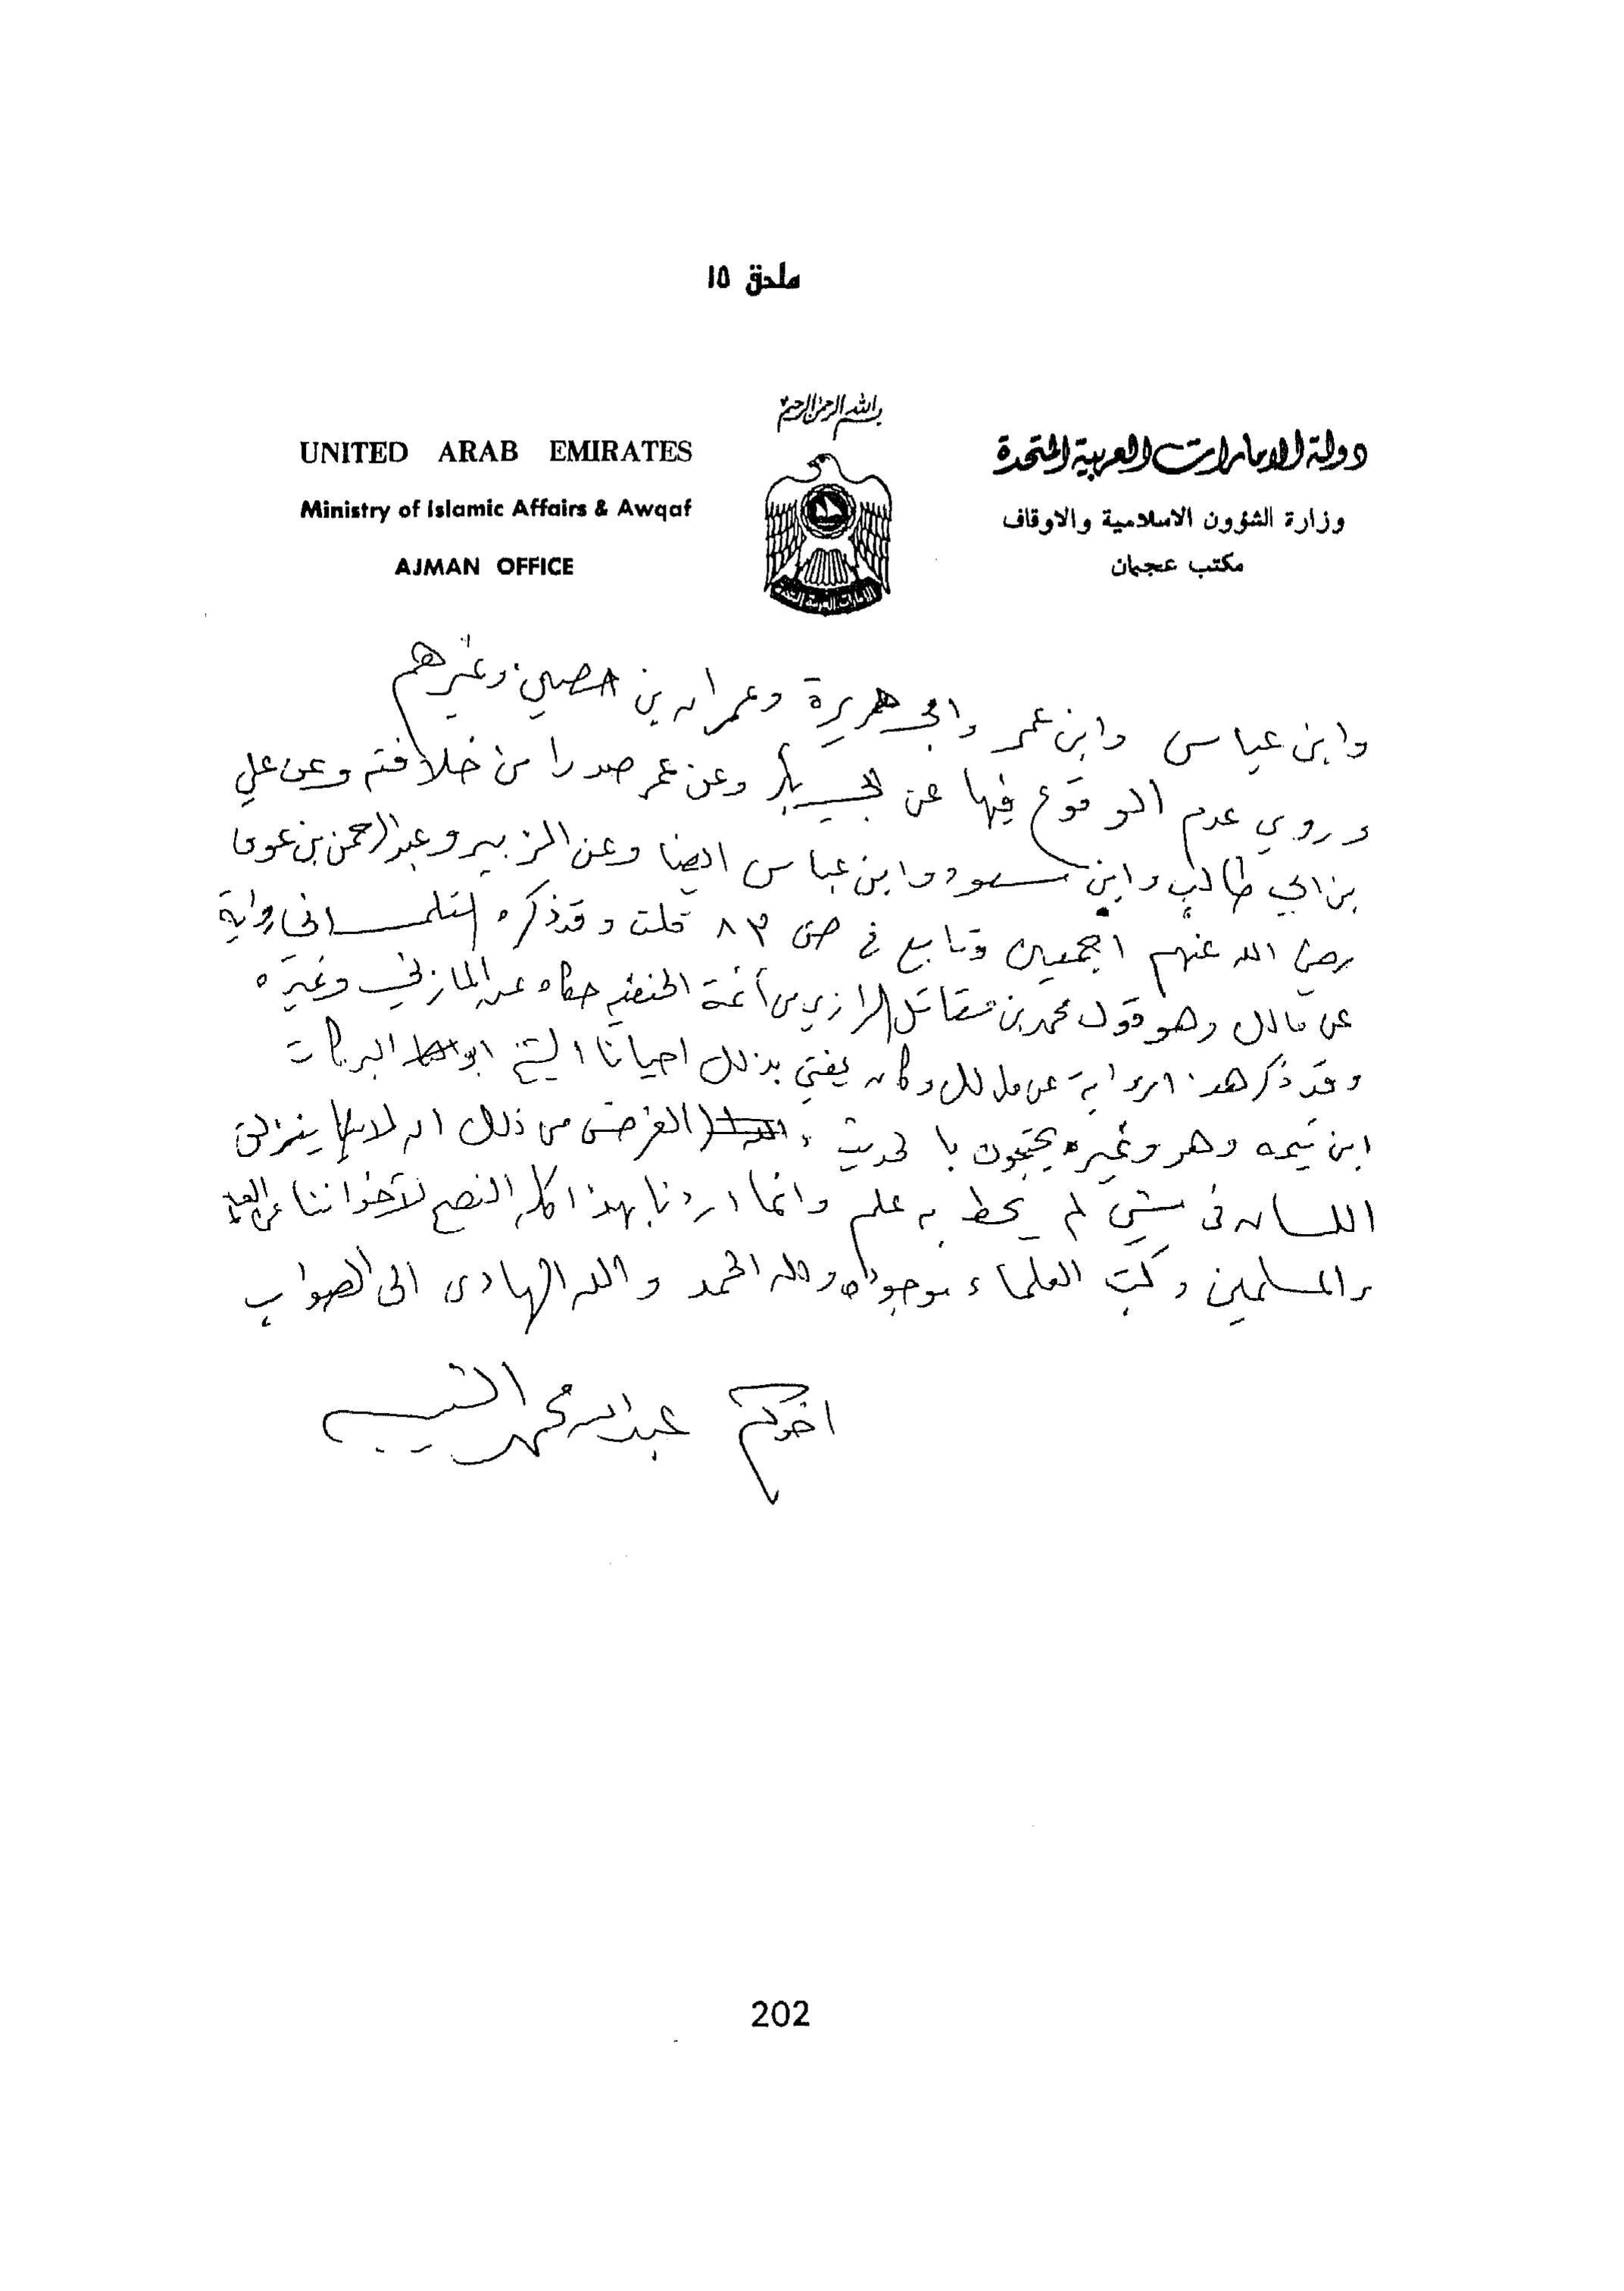 ملحق ١٥
بسم الله الرحمن الرحيم
UNITED ARAB EMIRATES
Ministry of Islamic Affairs & Awqaf
AJMAN OFFICE
دولة الامارات العربية المتحدة
وزارة الشؤون الاسلامية والاوقاف
مكتب عجمان
الامارات العربية المتحدة
وابن عباس وابن عمر وابي هريرة وعمران بن حصين وغيرهم
وروي عدم الوقوع فيها عن ابي بكر وعن عمر صدرا من خلافته وعن علي
بن ابي طالب وابن مسعود وابن عباس ايضا وعن الزبير وعبد الرحمن بن عوف
رضي الله عنهم اجمعين وتابع في ص ٨٣ قلت وقد ذكره التلمساني رواية
عن مالك وهو قول محمد بن مقاتل الرازي من أئمة الحنفيه حكاه عن المازني وغيره
وقد ذكر هذه الرواية عن مالك وكان يفتي بذلك احيانا الشيخ ابو البركات
ابن تيميه وهو وغيره يحتجون بالحديث الغرض من ذلك ان لا ينزلق
اللسان في شي لم يحط به علم وانما اردنا بهذا كله النصح لأخواننا
والمسلمين وكتب العلماء موجوده ولله الحمد والله الهادي الى الصواب
اخوكم عبدالله محمد الشيبه
202